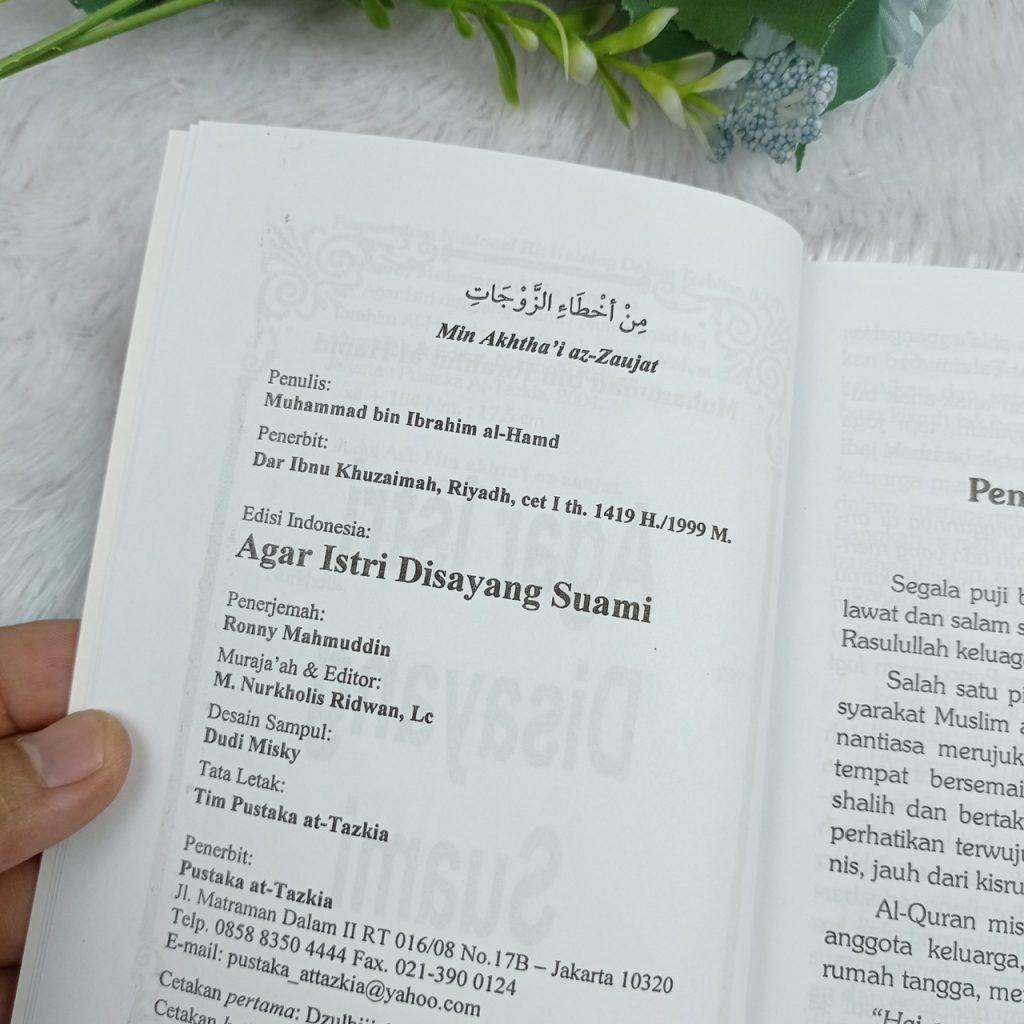 مِنْ أَخْطَاءِ الزَّوْجَاتِ
Min Akhtha'i az-Zaujat
Penulis:
Muhammad bin Ibrahim al-Hamd
Penerbit:
Dar Ibnu Khuzaimah, Riyadh, cet I th. 1419 H./1999 M.
Edisi Indonesia:
Agar Istri Disayang Suami
Penerjemah:
Ronny Mahmuddin
Muraja'ah & Editor:
M. Nurkholis Ridwan, Lc
Desain Sampul:
Dudi Misky
Tata Letak:
Tim Pustaka at-Tazkia
Penerbit:
Pustaka at-Tazkia
Jl. Matraman Dalam II RT 016/08 No.17B – Jakarta 10320
Telp. 0858 8350 4444 Fax. 021-390 0124
E-mail: pustaka_attazkia@yahoo.com
Cetakan pertama:
Cetakan
Segala puji
lawat dan salam
Rasulullah
Salah satu
syarakat Muslim
nantiasa merujuk
tempat
shalih dan
perhatikan
nis, jauh dari
Al-Quran
anggota keluarga,
rumah tangga,
"Hai